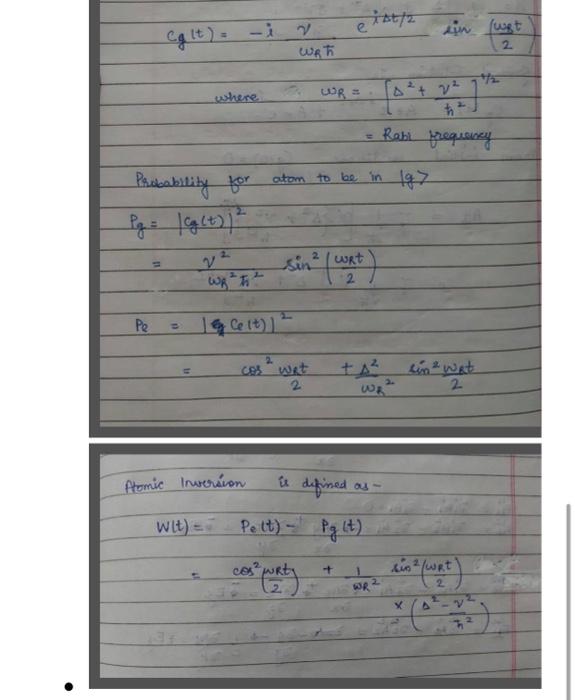 Cg(t) = -i ν/(ωRħ) e^(iΔt/2) sin (ωRt/2)
where ωR = [Δ² + ν²/ħ²]^(1/2)
= Rabi frequency
Probability for atom to be in |g>
Pg = |Cg(t)|²
= ν²/(ωR²ħ²) sin² (ωRt/2)
Pe = |Ce(t)|²
= cos² ωRt/2 + Δ²/ωR² sin² ωRt/2
Atomic Inversion is defined as -
W(t) = Pe(t) - Pg(t)
= cos² (ωRt/2) + 1/ωR² sin² (ωRt/2)
× (Δ² - ν²/ħ²)